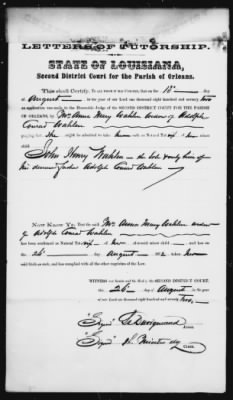 LETTERS OF TUTORSHIP.
STATE OF LOUISIANA,
Second District Court for the Parish of Orleans.
This shall Certify, To all whom it may concern, that on the 19th
August in the year of our Lord one thousand eight hundred and seventy two
an application was made to the Honorable the Judge of the SECOND DISTRICT COURT FOR THE PARISH
OF ORLEANS, by Mrs Ann Mary Wahlen widow of Adolph
Conrad Wahlen
praying that She might be admitted to take oath as Natural Tutrix of her minor
child
John Henry Wahlen
deceased Adolph Conrad Wahlen
NOW KNOW YE, That the said Mrs Ann Mary Wahlen widow
of Adolph Conrad Wahlen
has been confirmed as Natural Tutrix of her said minor child and has on
the 28th day August 1872 taken her
oath as such, and has complied with all the other requisites of the Law.
WITNESS our hands and the Seal of the SECOND DISTRICT COURT,
this 28th day of August in the year of
our Lord one thousand eight hundred and seventy two
Signed
JUDGE.
Signed
CLERK.